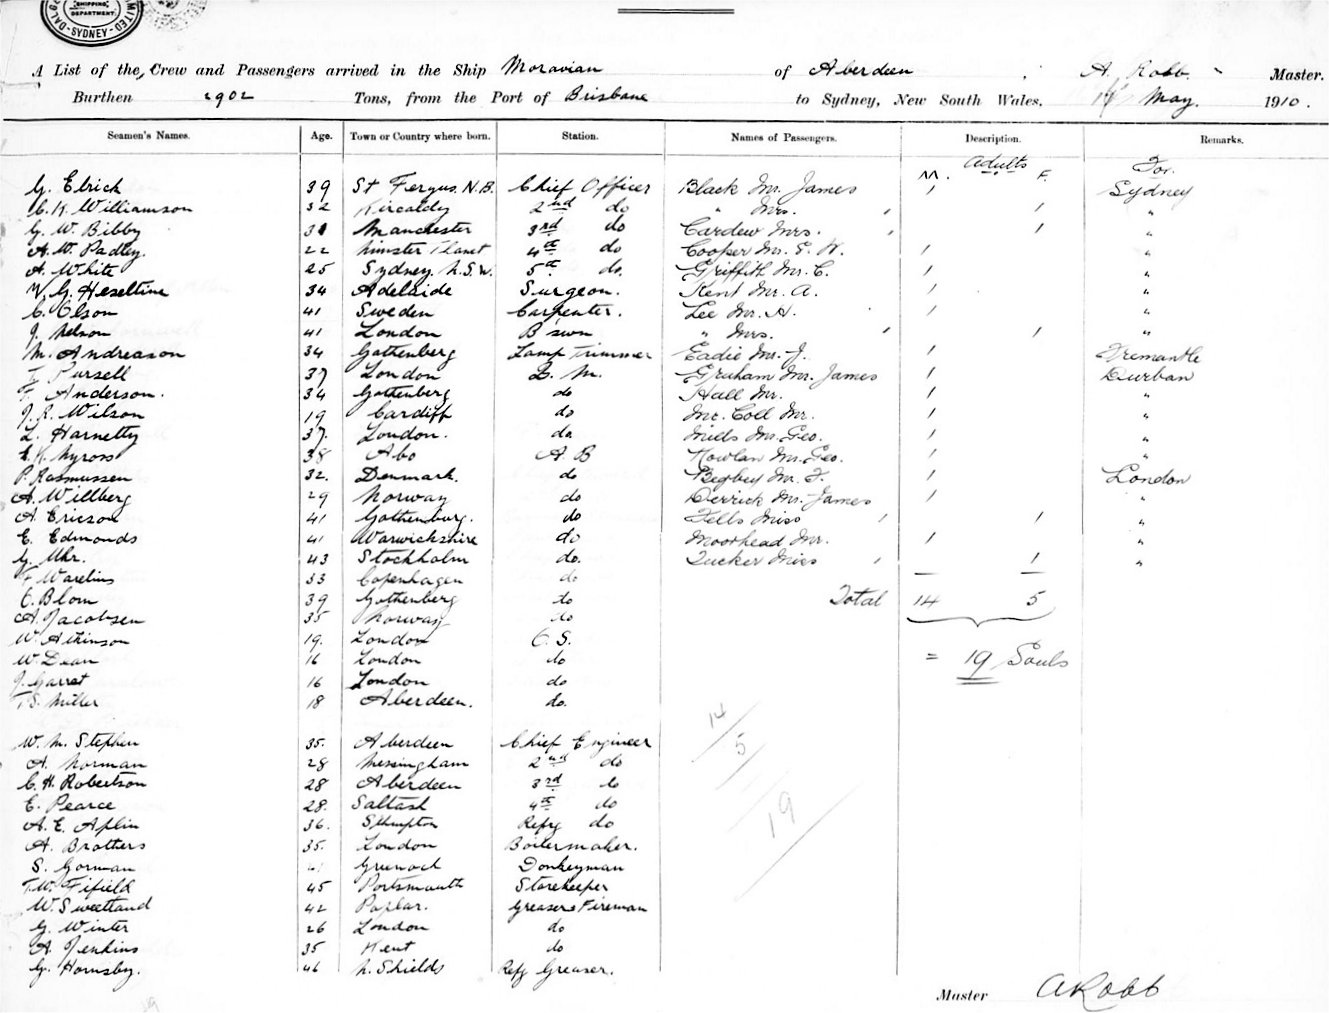 SHIPPING
DEPARTMENT.
SYDNEY
A List of the Crew and Passengers arrived in the Ship Moravian of Aberdeen, A. Robb. Master.
Burthen 2902 Tons, from the Port of Brisbane to Sydney, New South Wales. May. 1910.
Seamen's Names. Age. Town or Country where born. Station. Names of Passengers. Description. Remarks.
Adults For
M. F.
G. Elrick 39 St Fergus. N.B. Chief Officer Black Mr. James 1 Sydney
C. K. Williamson 32 Kircaldy 2nd do " Mrs. 1 "
G. W. Bibby Manchester 3rd do Cardew Mrs. 1 "
A. W. Padley. 22 Minster Thanet 4th do Cooper Mr. E. W. 1 "
A. White 25 Sydney. N.S.W. 5th do. Griffith Mr. C. 1 "
W. G. Heseltine 34 Adelaide Surgeon. Kent Mr. A. 1 "
C. Olson 41 Sweden Carpenter. Lee Mr. H. 1 "
J. Nelson 41 London B'swn " Mrs. 1 "
M. Andreason 34 Gothenberg Lamp Trimmer Eadie Mr. J. 1 Fremantle
T. Pursell 37 London Q. M. Graham Mr. James 1 Durban
F. Anderson. 34 Gothenberg do Hall Mr. 1 "
J. R. Wilson 19 Cardiff do Mc. Coll Mr. 1 "
L. Harnetty 37. London. do. Mills Mr. Geo. 1 "
E. K. Nyross 38 Abo A. B Nowlan Mr. Geo. 1 "
P. Rasmussen 32. Denmark. do Begbey Mr. F. 1 London
A. Willberg 29 Norway do Derrick Mr. James 1 "
A. Ericson 41 Gothenburg. do Fells Miss 1 "
E. Edmonds 41 Warwickshire do Moorhead Mr. 1 "
G. Uhr. 43 Stockholm do. Tucker Miss 1 "
F. Warelius 33 Copenhagen do
C. Blom 39 Gothenberg do Total 14 5
A. Jacobsen 35 Norway do
W. Atkinson 19. London O. S.
W. Dean 16 London do = 19 Souls
J. Garret 16 London do
T. S. Miller 18 Aberdeen. do.
14
W. M. Stephen 35. Aberdeen Chief Engineer 5
A. Norman 28 Messingham 2nd do
C. H. Robertson 28 Aberdeen 3rd do
E. Pearce 28. Saltash 4th do
A. E. Aplin 36. S'thampton Refrg do 19
A. Brothers 35. London Boilermaker.
S. Gorman 41 Greenock Donkeyman
T. W. Fifield 45 Portsmouth Storekeeper
W. Sweetland 42 Poplar. Greaser & Fireman
G. Winter 26 London do
A. Jenkins 35 Kent do
G. Hornsby. 46 N. Shields Refg Greaser.
Master A Robb